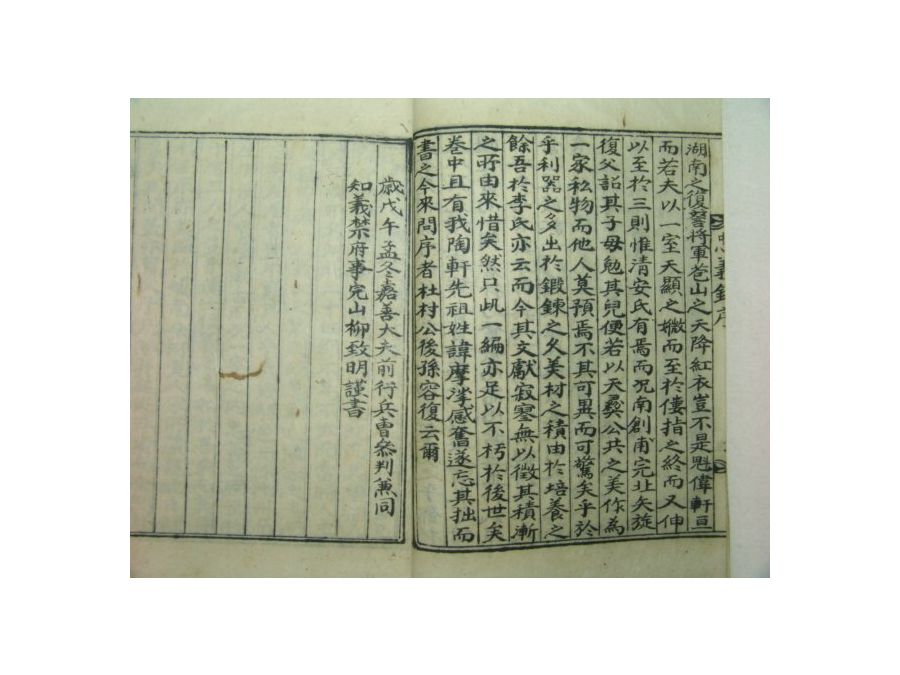 湖南之復讐將軍蒼山之天降紅衣豈不是魁偉軒亘
而若夫以一室天顯之媺而至於僂指之終而又伸
以至於三則惟清安氏有焉而况南創甫完北矢旋
復父詔其子母勉其兒便若以天彛公共之美作為
一家私物而他人莫預焉不其可異而可驚矣乎於
乎利器之多出於鍛鍊之久美材之積由於培養之
餘吾於李氏亦云而今其文獻寂寥無以徵其積漸
之所由來惜矣然只此一編亦足以不朽於後世矣
巻中且有我陶軒先祖姓諱摩挲感奮遂忘其拙而
書之今來問序者杜村公後孫容復云爾
歲戊午孟冬嘉善大夫前行兵曺叅判兼同
知義禁府事完山柳致明謹書